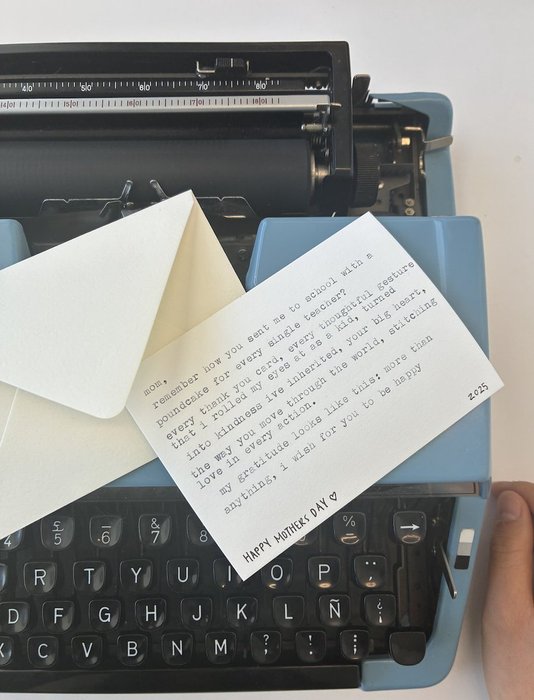 4|0 5|0 6|0 7|0 8|0
|4|0| |5|0| |6|0| |7|0| |8|0|
mom,
remember how you sent me to school with a
poundcake for every single teacher?
every thank you card, every thoughtful gesture
that i rolled my eyes at as a kid, turned
into kindness ive inherited, your big heart,
the way you move through the world, stitching
love in every action.
my gratitude looks like this: more than
anything, i wish for you to be happy
2025
HAPPY MOTHERS DAY ♡
4 £ 5 - 6 & 7 8 %
R T Y U I O P , ¨
D F G H J K L Ñ ¿ ¡
X C V B N M ? ; ! . :